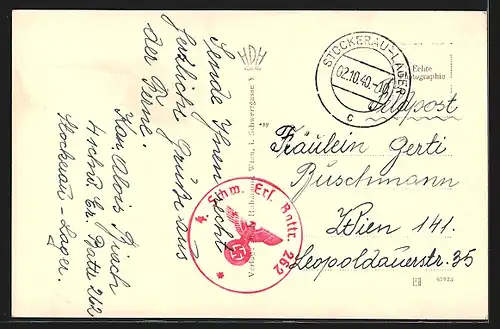 Sende Ihnen recht
herzliche Grüße aus
der Ferne.
Kan. Alois
4 schw. Er. Battr 262
Stockerau-Lager.
HDH
Wien, I. Schwertgasse 3
STOCKERAU-LAGER
02.10.40.-10
c
Echte
Photographie
Feldpost
Fräulein Gerti
Buschmann
Wien 141.
Leopoldauerstr. 35
4. Schw. Ers. Battr. 262
*